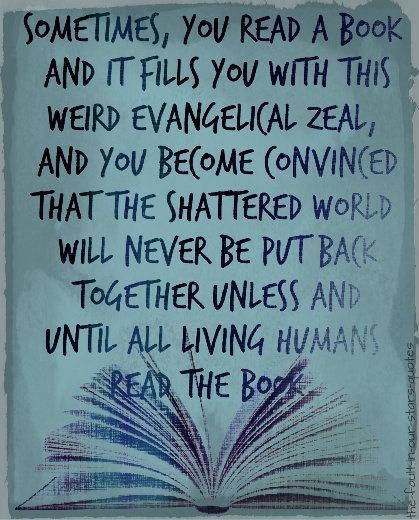 SOMETIMES, YOU READ A BOOK
AND IT FILLS YOU WITH THIS
WEIRD EVANGELICAL ZEAL,
AND YOU BECOME CONVINCED
THAT THE SHATTERED WORLD
WILL NEVER BE PUT BACK
TOGETHER UNLESS AND
UNTIL ALL LIVING HUMANS
READ THE BOOK
the-fault-in-our-stars-quotes